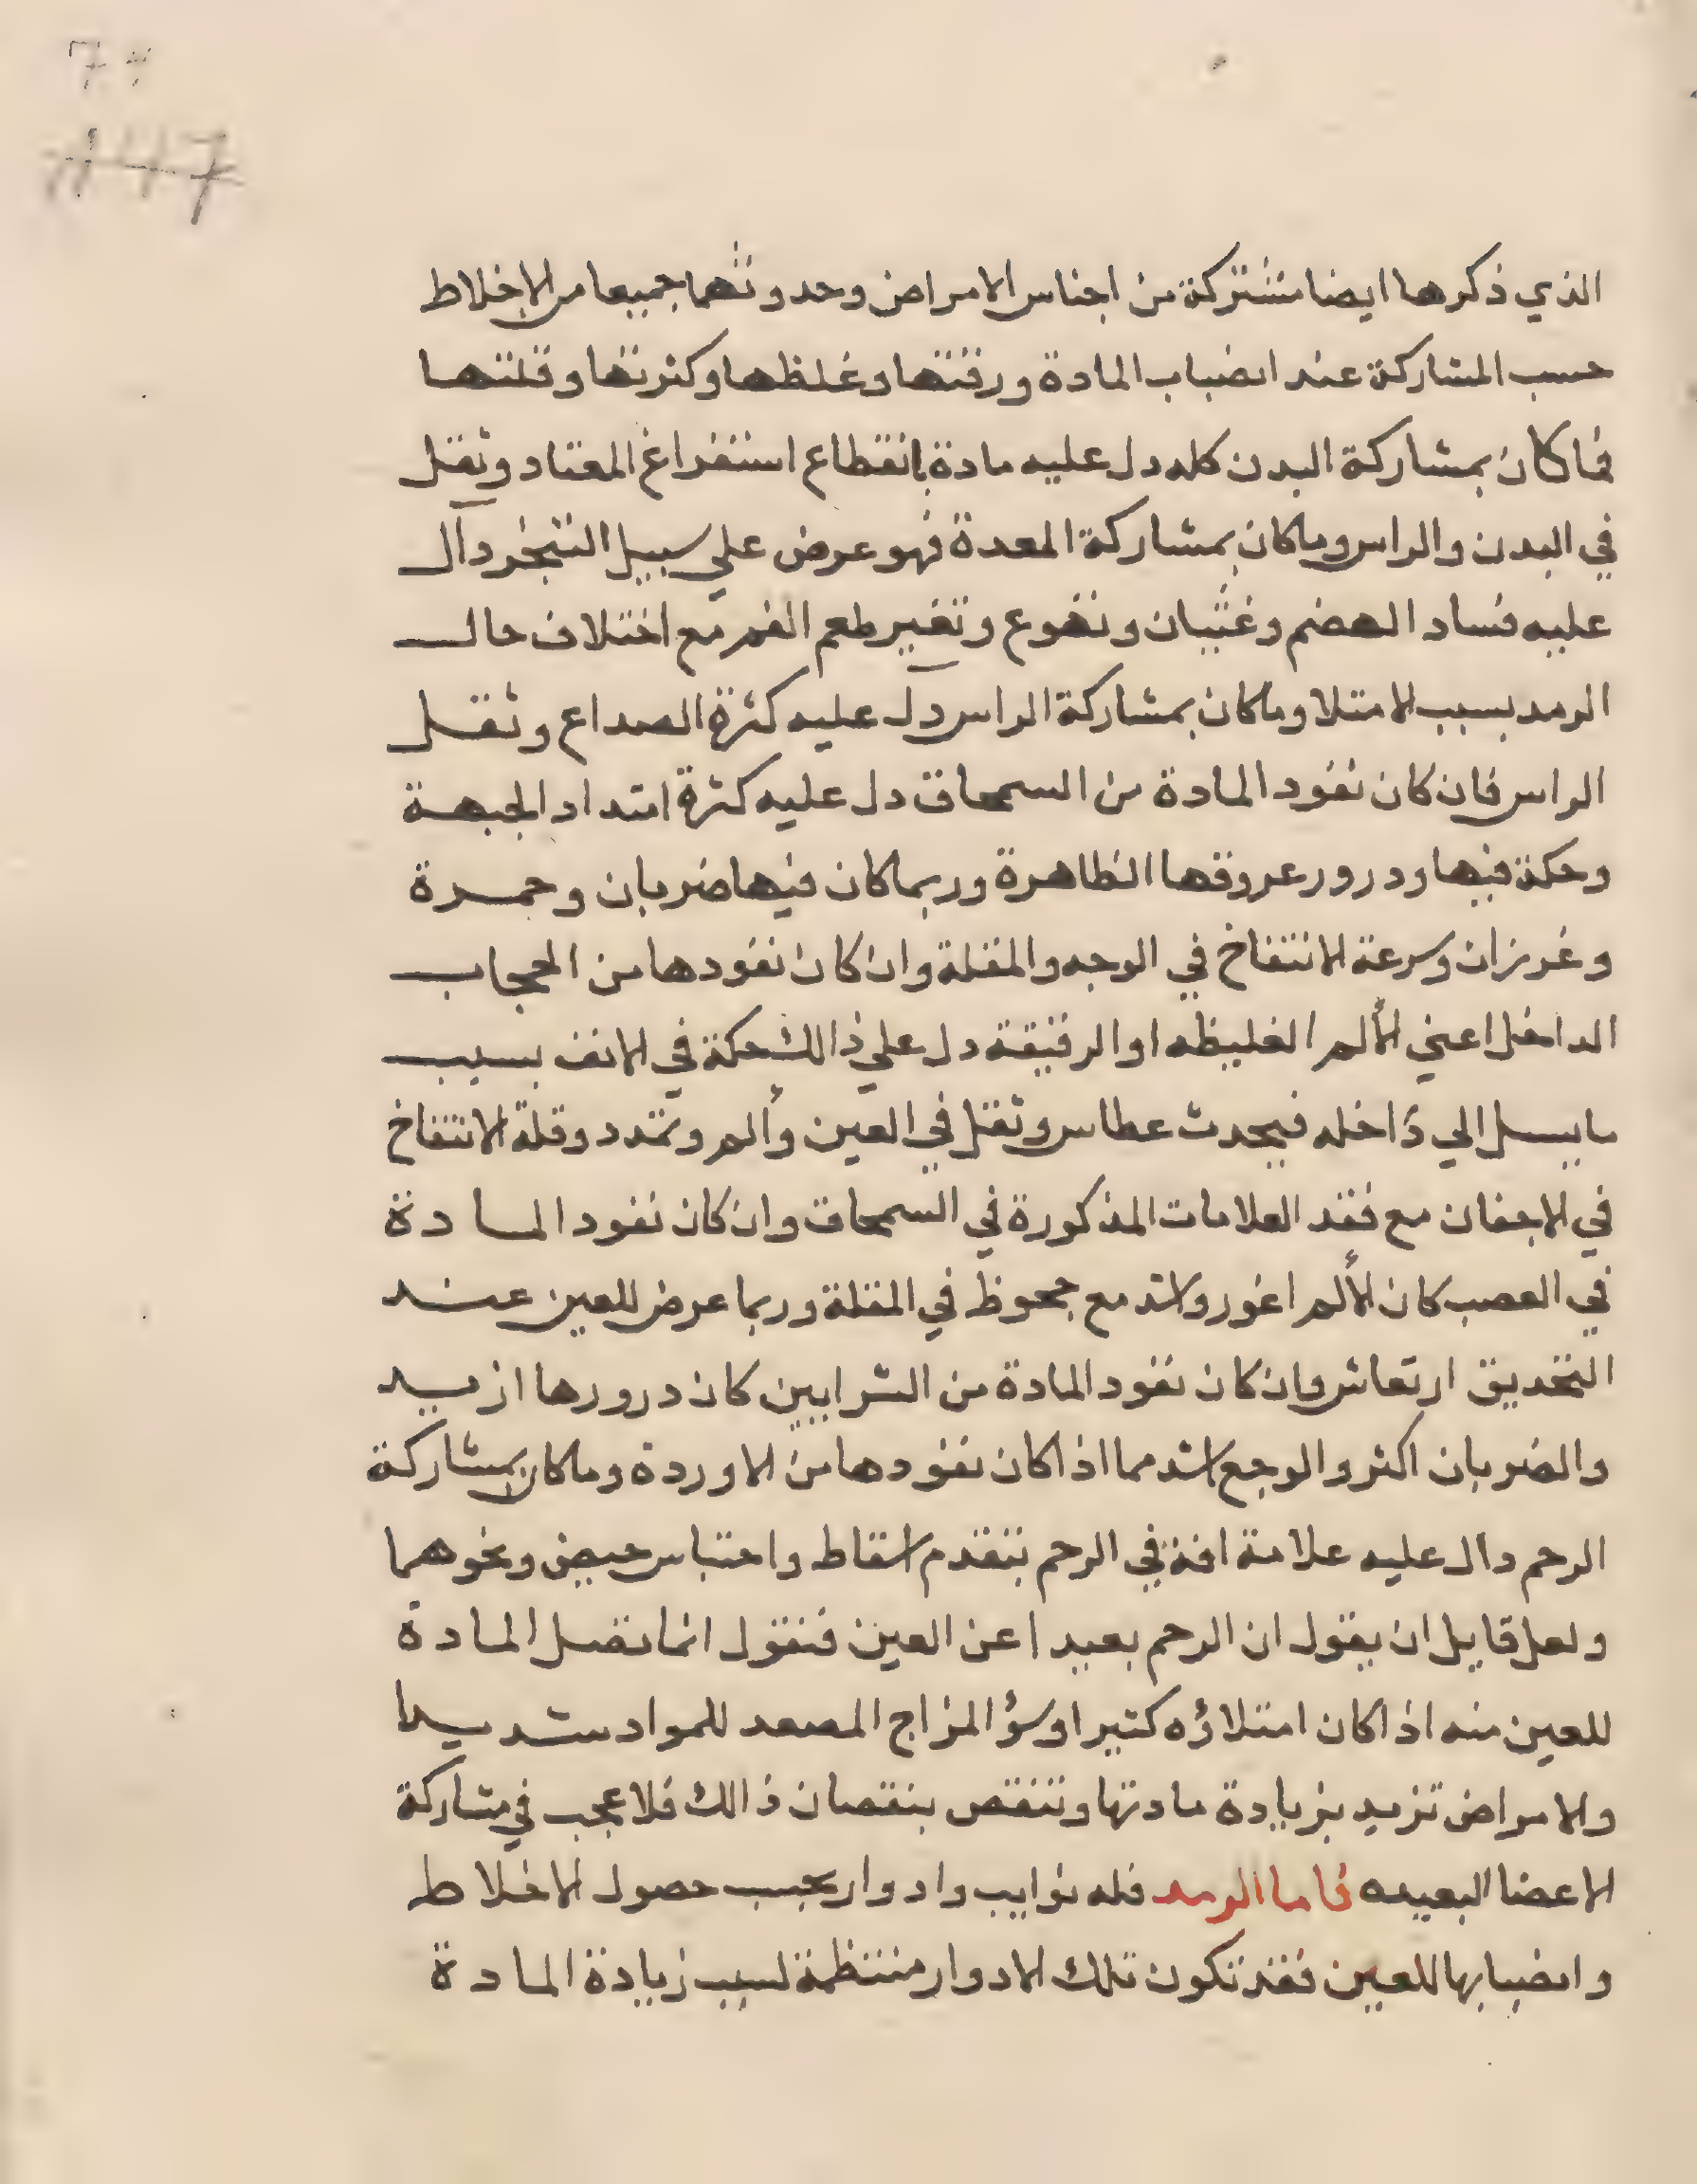 الذي ذكرها ايضا مشتركة من اجناس الامراض وحدوثهما جميعا من الاخلاط
حسب المشاركة عند انضباب المادة ورقتها وغلظها وكثرتها وقلتها
فما كان بمشاركة البدن كله دل عليه مادة بانقطاع استفراغ المعتاد وثقل
في البدن والراس وما كان بمشاركة المعدة فهو عرض علي سبيل التبخر وآل
عليه فساد الهضم وغثيان ونهوع وتغيير طعم الفم مع اختلاف حال
الرمد بسبب الامتلا وما كان بمشاركة الراس دل عليه كثرة الصداع وثقل
الراس فان كان نفود المادة من السمحاق دل عليه كثرة امتداد الجبهة
وحكة فيها ودرور عروقها الظاهرة وربما كان فيها ضربان وحمرة
وغرزان وسرعة الانتفاخ في الوجه والمقلة وان كان نفودها من الحجاب
الداخل اعني الألم الغليظه او الرقيقة دل علي ذالك حكة في الانف بسبب
ما يسل الي داخله فيحدث عطاس وثقل في العين وألم وتمدد وقلة الانتفاخ
في الاجفان مع فقد العلامات المذكورة في السمحاق وان كان نفود المادة
في العصب كان الألم اغور واشد مع جحوظ في المقلة وربما عرض للعين عند
التحديق ارتعاش وان كان نفود المادة من الشرايين كان درورها ازيد
والضربان اكثر والوجع اشد مما اذا كان نفودها من الاوردة وما كان بمشاركة
الرحم دال عليه علامة افة في الرحم بتقدم اسقاط واحتباس حيض ونحوهما
ولعل قايل ان يقول ان الرحم بعيدا عن العين فنقول انما تصل المادة
للعين منه اذا كان امتلاؤه كتيرا وسؤ المزاج المصعد للمواد شديدا
والامراض تزيد بزيادة مادتها وتنقص بنقصان ذالك فلا عجب في مشاركة
الاعضا البعيده فاما الرمد فله نوايب وادوار بحسب حصول الاخلاط
وانضبابها للعين فقد تكون تلك الادوار منتظمة لسبب زيادة المادة